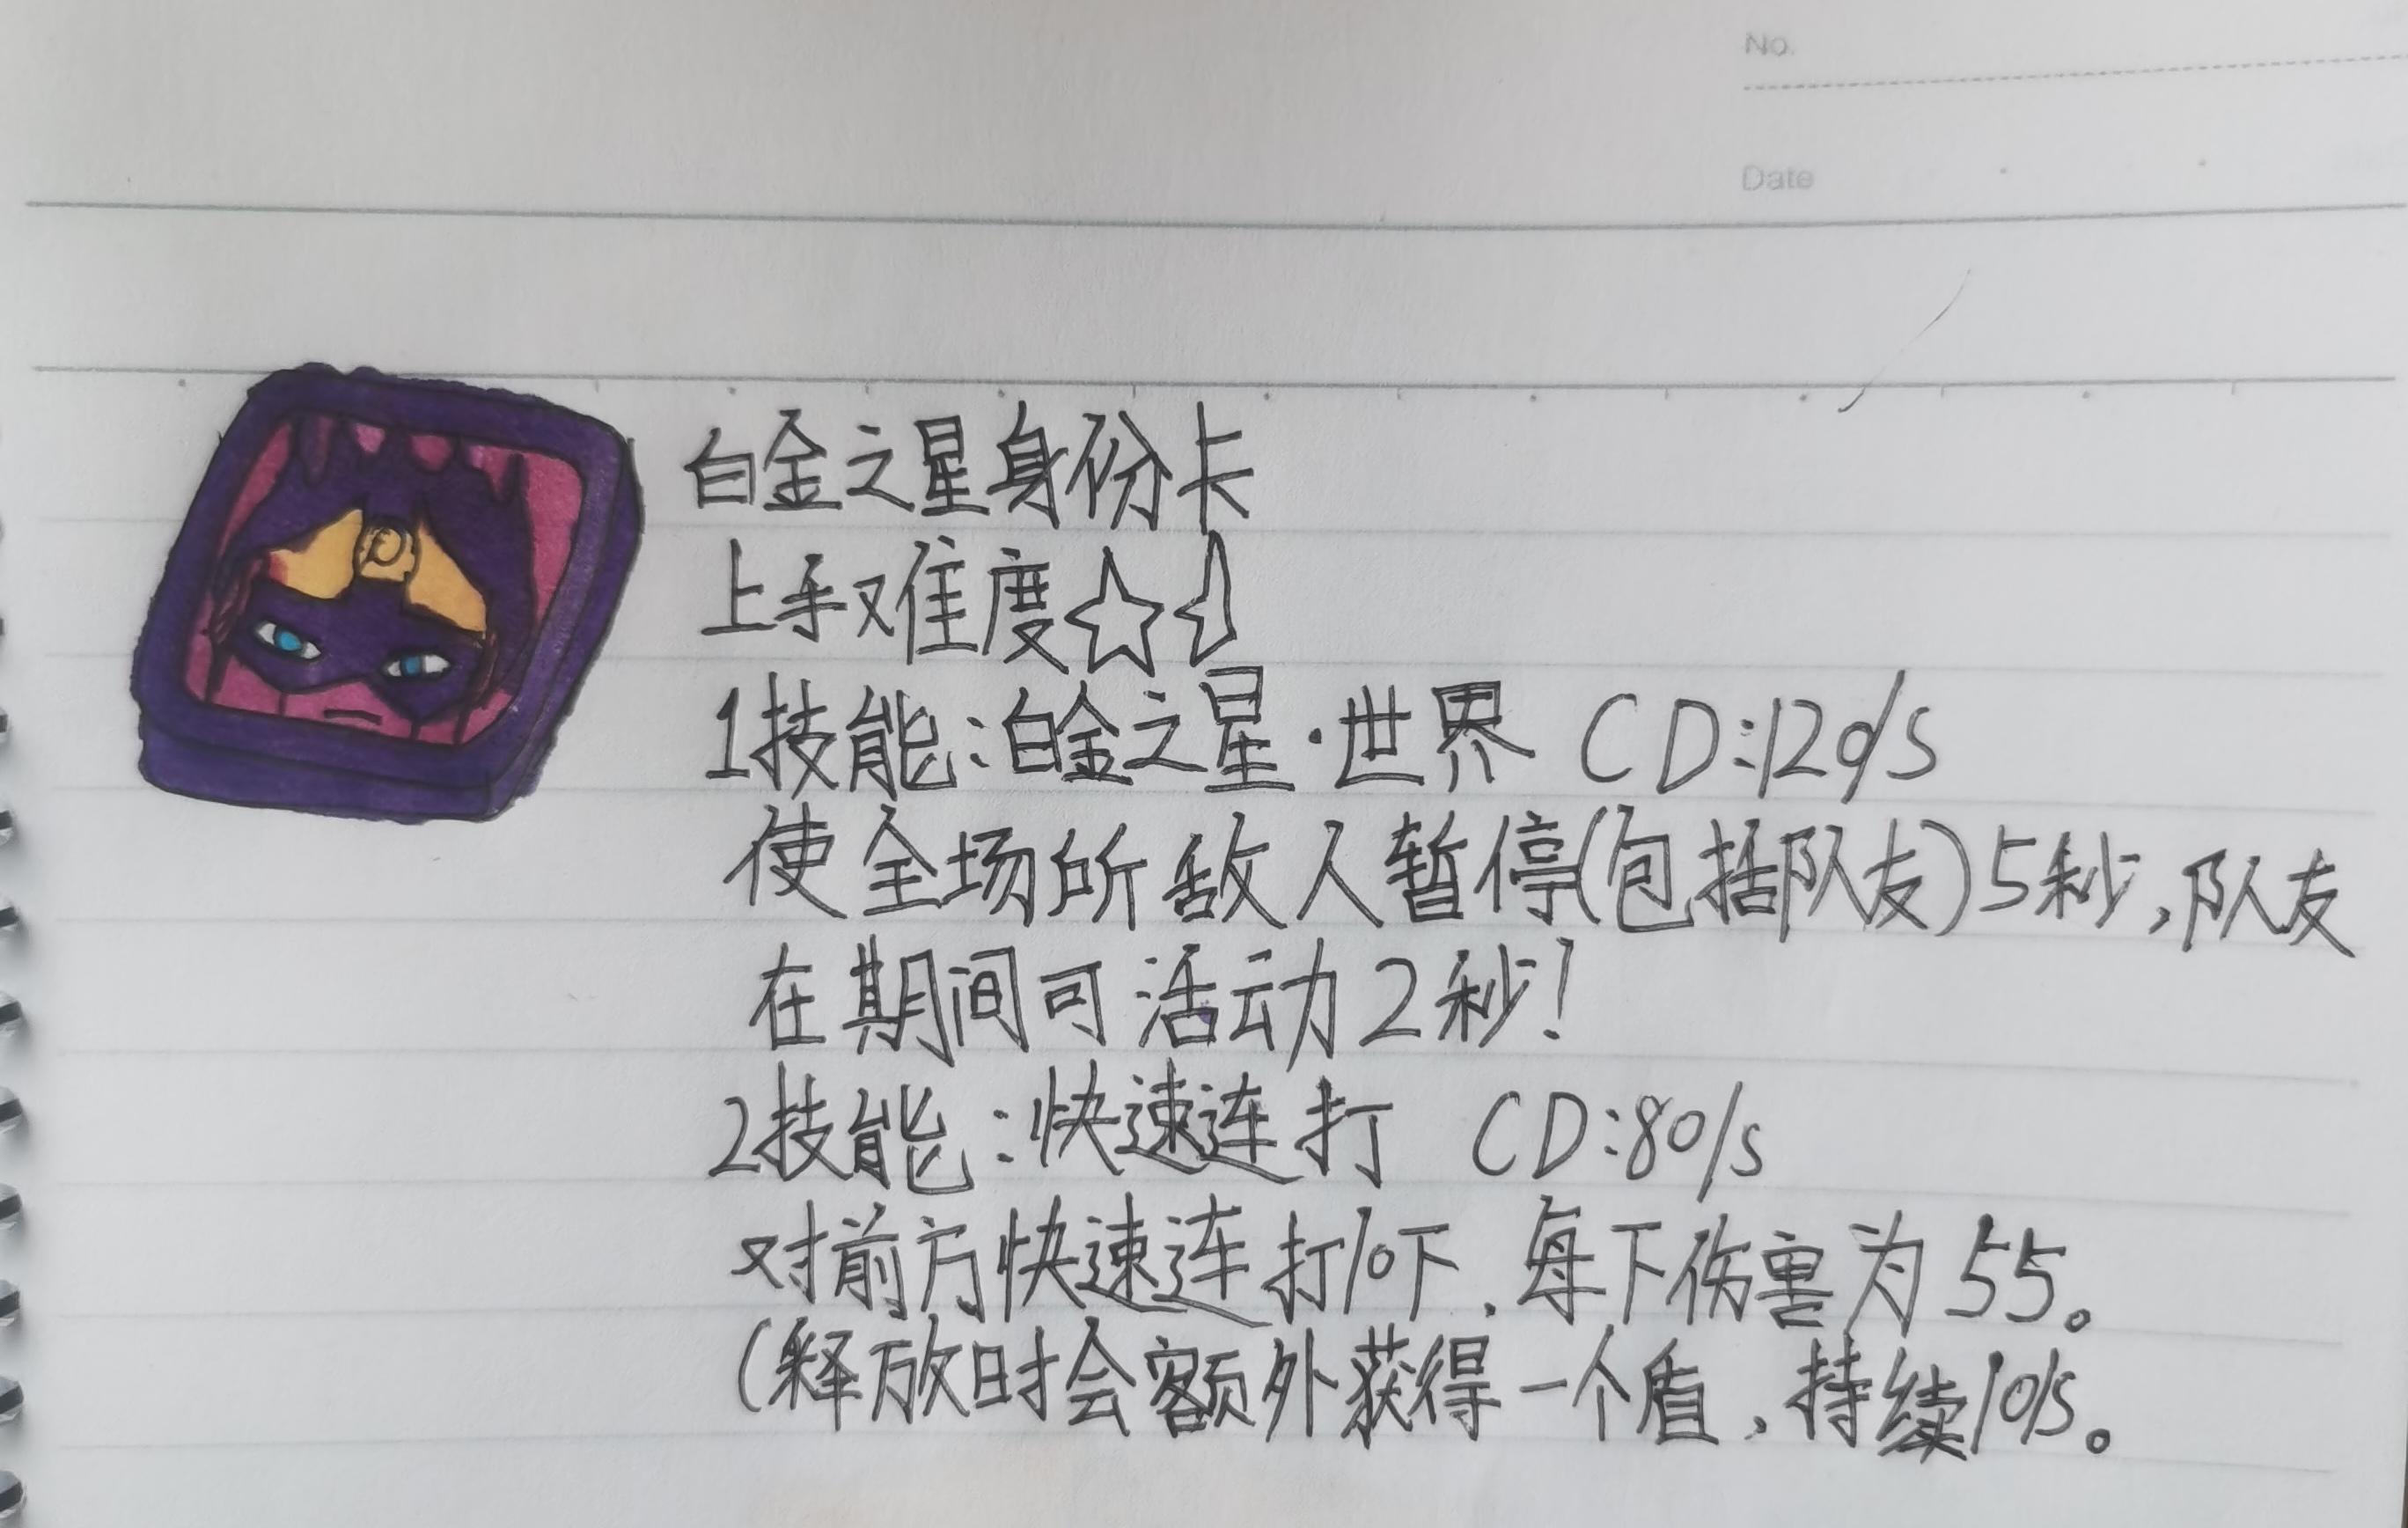 No.
Date
白金之星身份卡
上手难度☆
1技能:白金之星·世界 CD:120/s
使全场所敌人暂停(包括队友)5秒,队友
在期间可活动2秒!
2技能:快速连打 CD:80/s
对前方快速连打10下,每下伤害为55。
(释放时会额外获得一个盾,持续10/s。